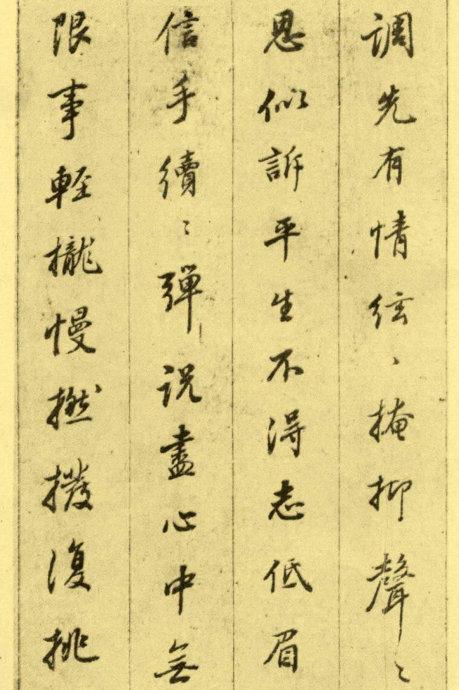 調先有情絃〻掩抑聲〻
思似訴平生不得志低眉
信手續〻彈說盡心中無
限事輕攏慢撚撥復挑